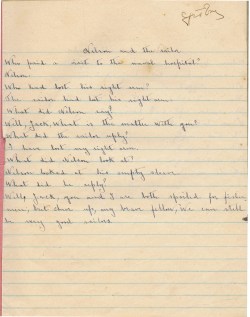 Nelson and the sailor
Who paid a visit to the naval hospital?
Nelson.
Who had lost his right arm?
The sailor had lost his right arm.
What did Nelson say?
Well, Jack, What is the matter with you?
What did the sailor reply?
I have lost my right arm
What did Nelson look at?
Nelson looked at his empty sleeve
What did he reply?
Well, Jack, you and I are both spoiled for fisher
men, but cheer up, my brave fellow, We can still
be very good sailors